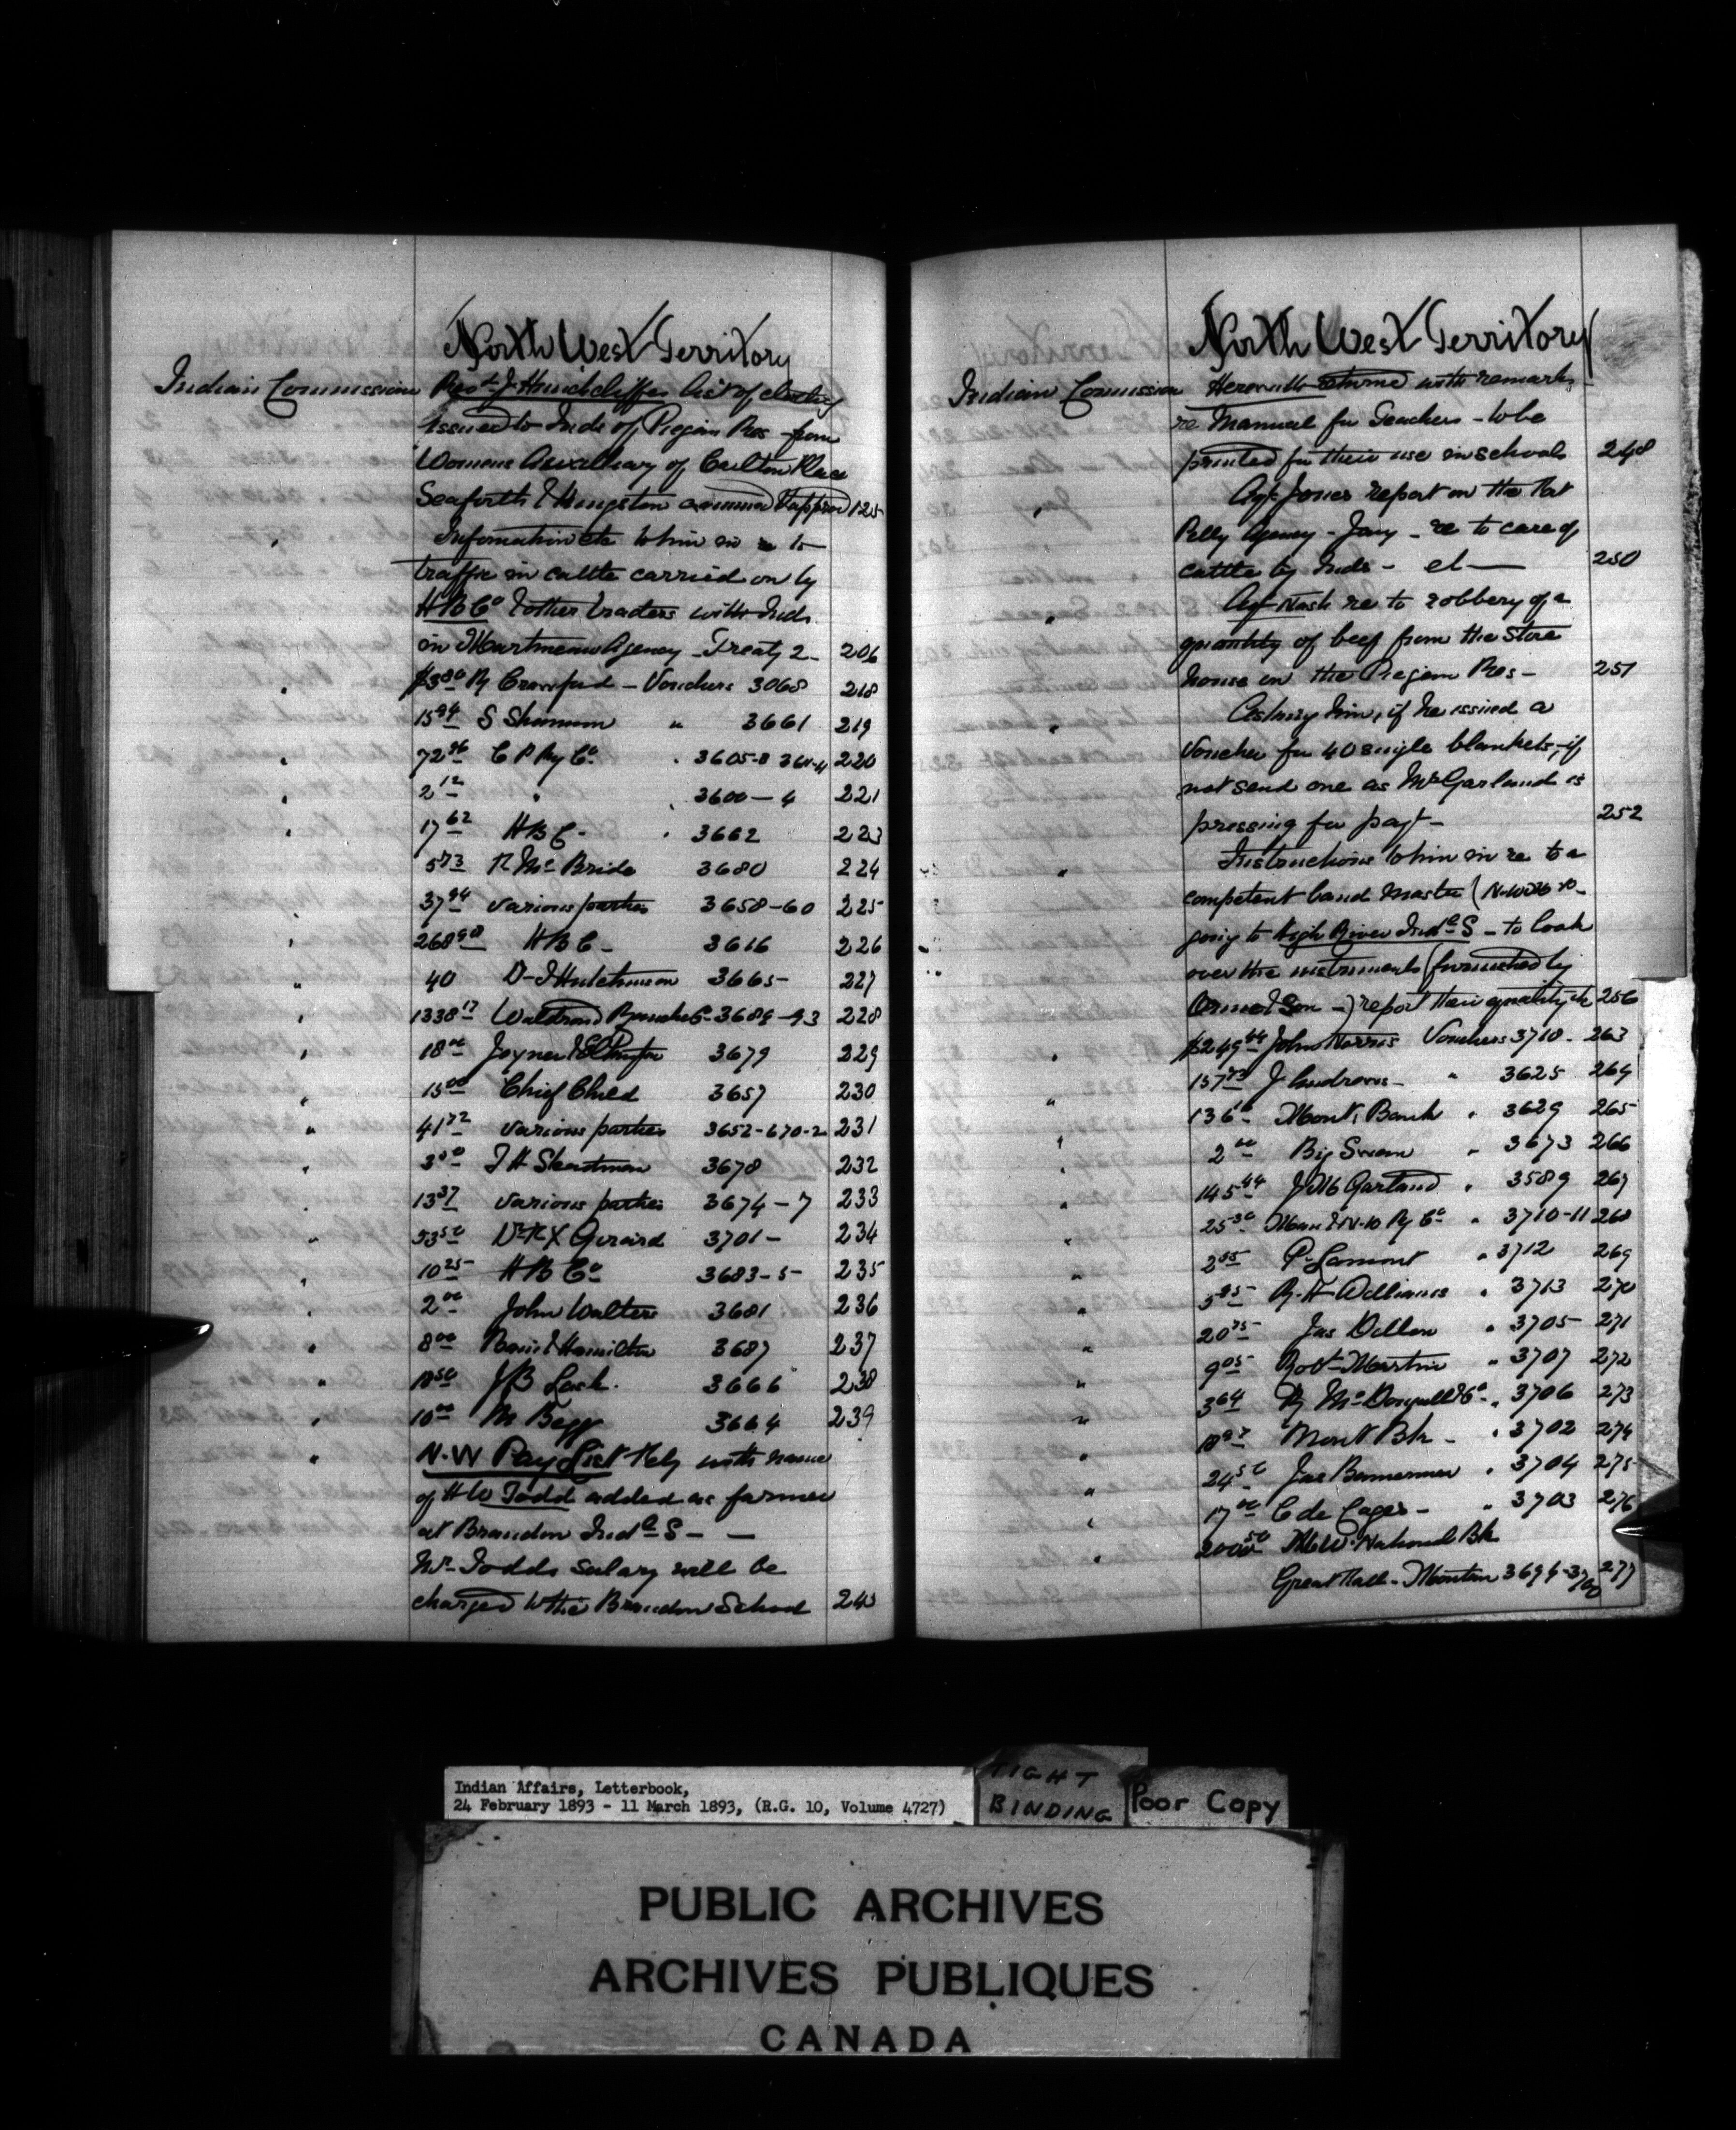 North West Territory
Indian Commission Revd J. Hinchcliffes list of clothing
issued to Inds of Piegan Res from
Womens Auxilliary of Carlton Place
Seaforth & Kingston approved 125
" Information etc to him in re to
traffic in cattle carried on by
H B Co & other traders with Inds
in Agency - Treaty 2 - 206
" $3 80 R Crawford - Vouchers 3068 218
" 15 94 S " 3661 219
" 72 96 C P Ry Co " 3605-8 220
" 2 12 " 3600-4 221
" 17 62 H B C - " 3662 223
5 73 R Mc Bride 3680 224
37 94 various parties 3658-60 225
" 268 98 H B C - 3616 226
" 40 D- J Hutchinson 3665- 227
" 1338 17 Walrond Ranche Co 3689-93 228
" 18 00 Joyner & Elkington 3679 229
" 15 00 Chief Child 3657 230
" 41 72 various parties 3652-670-2 231
" 3 00 3678 232
" 13 37 various parties 3674-7 233
" 53 50 Dr R X Girard 3701- 234
" 10 25 H B Co 3683-5- 235
" 2 00 John Walter 3681 236
" 8 00 & Hamilton 3687 237
" 18 50 J B Lash. 3666 238
" 10 00 M Begg 3664 239
" N.W Pay List with name
of H W Todd added as farmer
at Brandon Indl S - -
Mr Todds salary will be
charged to the Brandon School 240
North West Territory
Indian Commission Herewith returned with remarks -
re Manual for Teachers - to be
printed for their use in schools 248
" Agt Jones report on the
Pelly Agency - Jany - re to care of
cattle by Inds - 250
" Agt Nash re to robbery of a
quantity of beef from the store
house on the Piegan Res - 251
" Asking him, if he issued a
voucher for 40 single blankets, if
not send one as Mr Garland is
pressing for payt - 252
" Instructions to him in re to a
competent band master (
going to High River Indl S - to look
over the instruments (furnished by
& Son -) report their quality &c 256
" $249 44 John Norris Vouchers 3710 - 263
" 157 73 J Andrews - " 3625 264
" 136 10 Mont. Bank " 3629 265
" 2 00 Big Swan " 3673 266
" 145 44 J M Garland " 3589 267
" 25 30 Man & N-W Ry Co " 3710-11 268
" 2 55 P. Lamont " 3712 269
" 5 95 R. H Williams " 3713 270
" 20 75 Jas Dillon " 3705 271
" 9 05 Robt Martin " 3707 272
" 3 64 R McDougall & Co " 3706 273
" 18 97 Mont Bk - " 3702 274
" 24 50 Jas Bannerman " 3704 275
" 17 00 C de Cages - " 3703 276
" 2000 50 N.W. National Bk
Great Falls - Montana 3694-3700 277
Indian Affairs, Letterbook,
24 February 1893 - 11 March 1893, (R.G. 10, Volume 4727)
TIGHT
BINDING
Poor Copy
PUBLIC ARCHIVES
ARCHIVES PUBLIQUES
CANADA